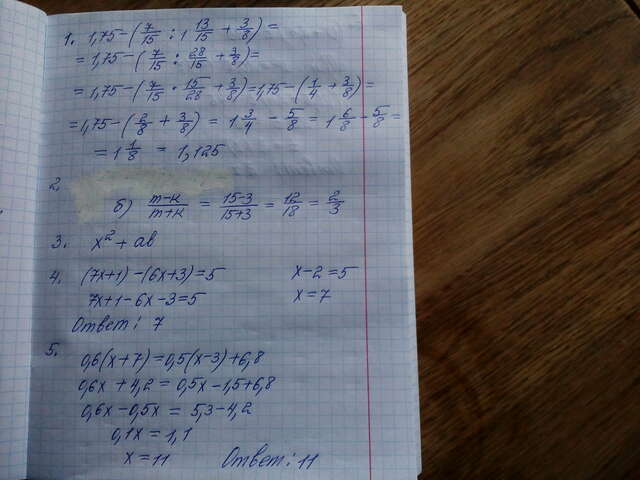 1. 1,75-(7/15 : 1 13/15 + 3/8)=
= 1,75-(7/15 : 28/15 + 3/8)=
= 1,75-(7/15 · 15/28 + 3/8)=1,75-(1/4 + 3/8)=
=1,75-(2/8 + 3/8) = 1 3/4 - 5/8 = 1 6/8 - 5/8 =
= 1 1/8 = 1,125
2.
б) m-н/m+н = 15-3/15+3 = 12/18 = 2/3
3. x² + ab
4. (7x+1)-(6x+3)=5 x-2=5
7x+1-6x-3=5 x=7
Ответ: 7
5.
0,6(x+7)=0,5(x-3)+6,8
0,6x+4,2=0,5x-1,5+6,8
0,6x-0,5x=5,3-4,2
0,1x=1,1
x=11 Ответ: 11